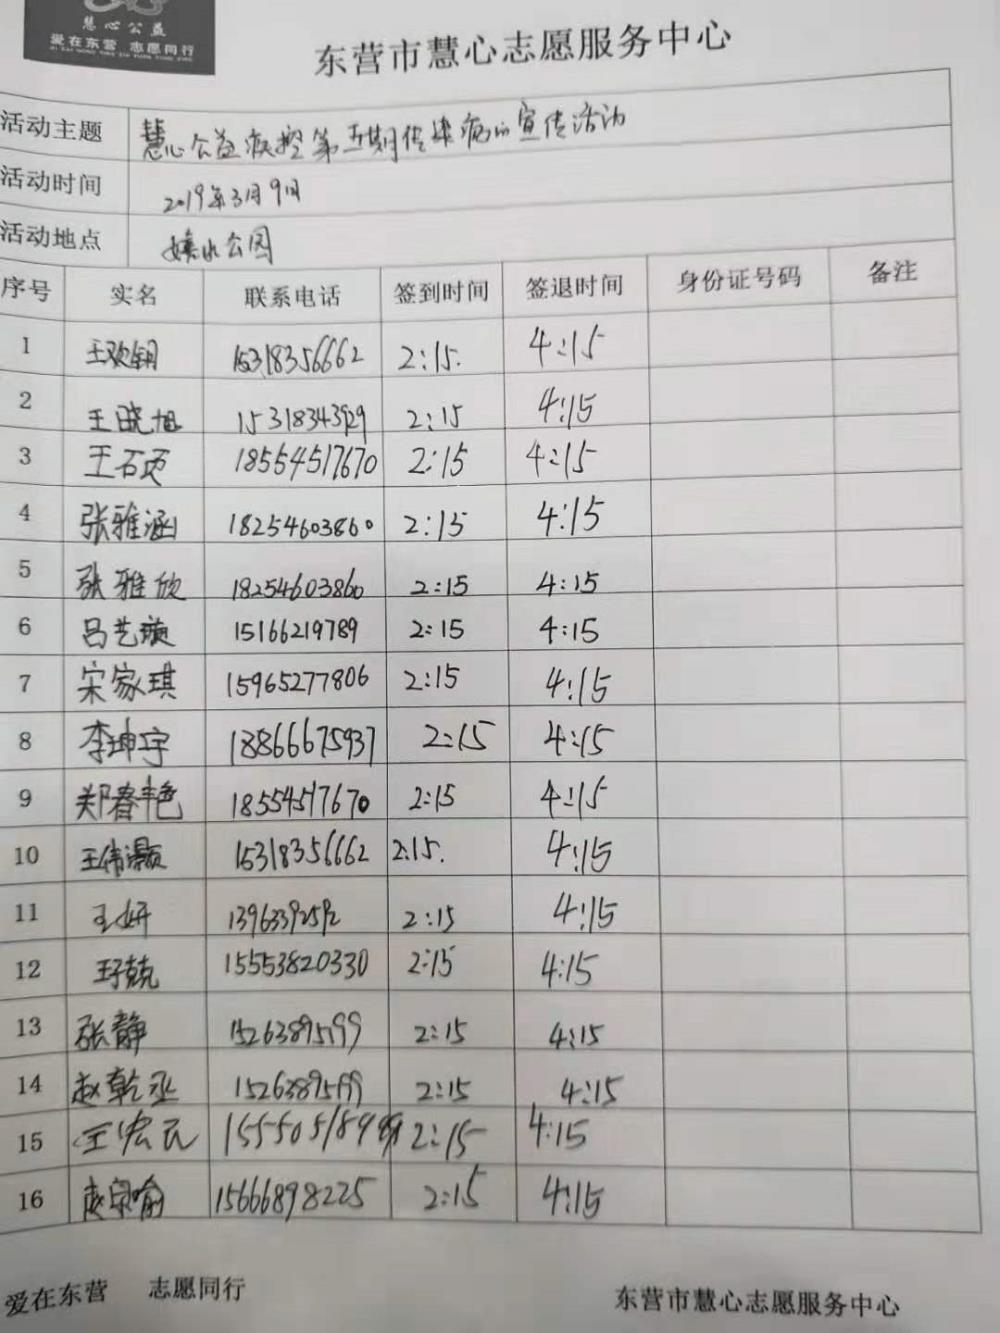 慧心公益
爱在东营 志愿同行
东营市慧心志愿服务中心
活动主题 慧心公益疾控第五期传染病的宣传活动
活动时间 2019年3月9日
活动地点 公园
序号 实名 联系电话 签到时间 签退时间 身份证号码 备注
1 王欢钥 15318356662 2:15. 4:15
2 王晓旭 15318343929 2:15 4:15
3 王石页 18554517670 2:15 4:15
4 张雅涵 18254603860 2:15 4:15
5 张雅欣 18254603860 2:15 4:15
6 吕艺璇 15166219789 2:15 4:15
7 宋家琪 15965277806 2:15 4:15
8 李坤宇 18866675937 2:15 4:15
9 郑春艳 18554517670 2:15 4:15
10 王伟灏 15318356662 2:15. 4:15
11 王妍 2:15 4:15
12 15553820330 2:15 4:15
13 张静 15263895199 2:15 4:15
14 赵乾丞 15263895199 2:15 4:15
15 王宏 2:15 4:15
16 15666898225 2:15 4:15
爱在东营 志愿同行
东营市慧心志愿服务中心